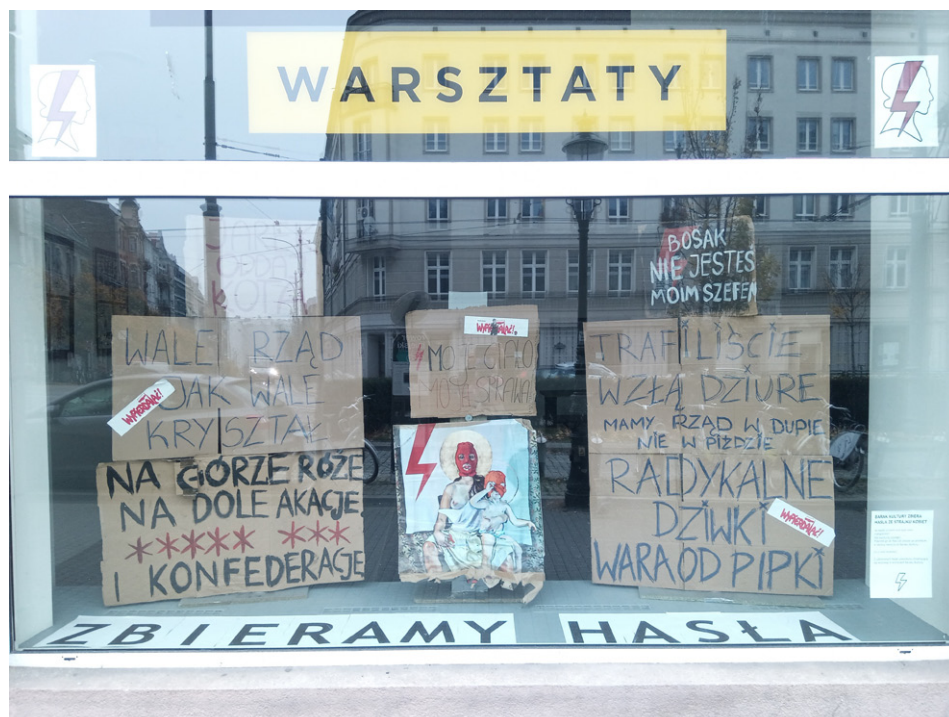 WARSZTATY
BOSAK
NIE JESTEŚ
MOIM SZEFEM
WALE RZĄD
JAK WALE
KRYSZTAŁ
WYPIERDALAĆ!
NA GÓRZE RÓŻE
NA DOLE AKACJE
***** ***
I KONFEDERACJE
WYPIERDALAĆ!
MOJE CIAŁO
MOJA SPRAWA
TRAFILIŚCIE
W ZŁĄ DZIURE
MAMY RZĄD W DUPIE
NIE W PIŹDZIE
RADYKALNE
DZIWKI
WYPIERDALAĆ!
WARA OD PIPKI
ZBIERAMY HASŁA